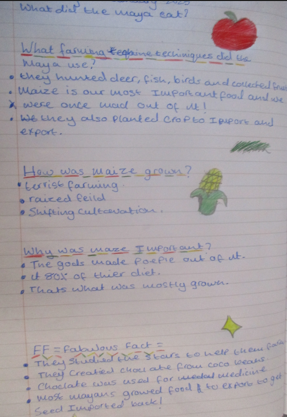 What did the maya eat?
What farming techniques did the
Maya use?
• they hunted deer, fish, birds and collected
• Maize is our most important food and we
were once mad out of it!
• We they also planted crop to import and
export.
How was maize grown?
• terrist farming
• rauced feild
• Shifting cultervation.
Why was maze Important?
• The gods made poeple out of it.
• it 80% of thier diet.
• Thats what was mostly grown.
FF = Fabulous Fact =
• They studied the stars to help them farm
• They created choclate from coco beans.
• Choclate was used for mental medicine
• Most mayans growed food & to export to get
Seed Imported back!